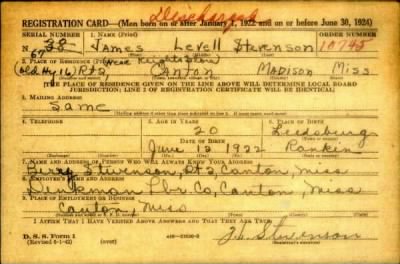 Discharged
REGISTRATION CARD—(Men born on or after January 1, 1922 and on or before June 30, 1924)
SERIAL NUMBER
1. NAME
ORDER NUMBER
38 James Levell Stevenson 10745
67
(Near Knights Store)
(Old Hy 16) Rt 2, Canton Madison Miss.
2. PLACE OF RESIDENCE
THE PLACE OF RESIDENCE GIVEN ON THE LINE ABOVE WILL DETERMINE LOCAL BOARD
JURISDICTION; LINE 2 OF REGISTRATION CERTIFICATE WILL BE IDENTICAL
3. MAILING ADDRESS
Same
4. TELEPHONE
5. AGE IN YEARS
6. PLACE OF BIRTH
20 Leedsburg
DATE OF BIRTH
June 12 1922 Rankin
7. NAME AND ADDRESS OF PERSON WHO WILL ALWAYS KNOW YOUR ADDRESS
Berry Stevenson, Rt 2, Canton, Miss
8. EMPLOYER'S NAME AND ADDRESS
Denkman Lbr Co, Canton, Miss
9. PLACE OF EMPLOYMENT OR BUSINESS
Canton, Miss
I AFFIRM THAT I HAVE VERIFIED ABOVE ANSWERS AND THAT THEY ARE TRUE.
D. S. S. Form 1
J. L. Stevenson
(Registrant's signature)